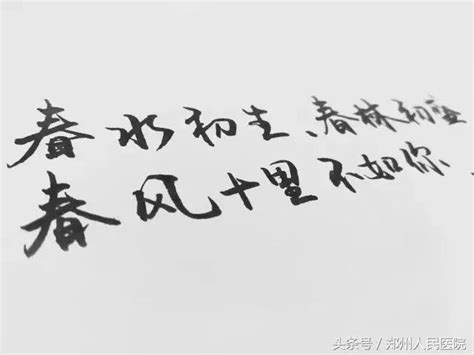 春水初生、春林初盛
春风十里不如你
头条号／郑州人民医院